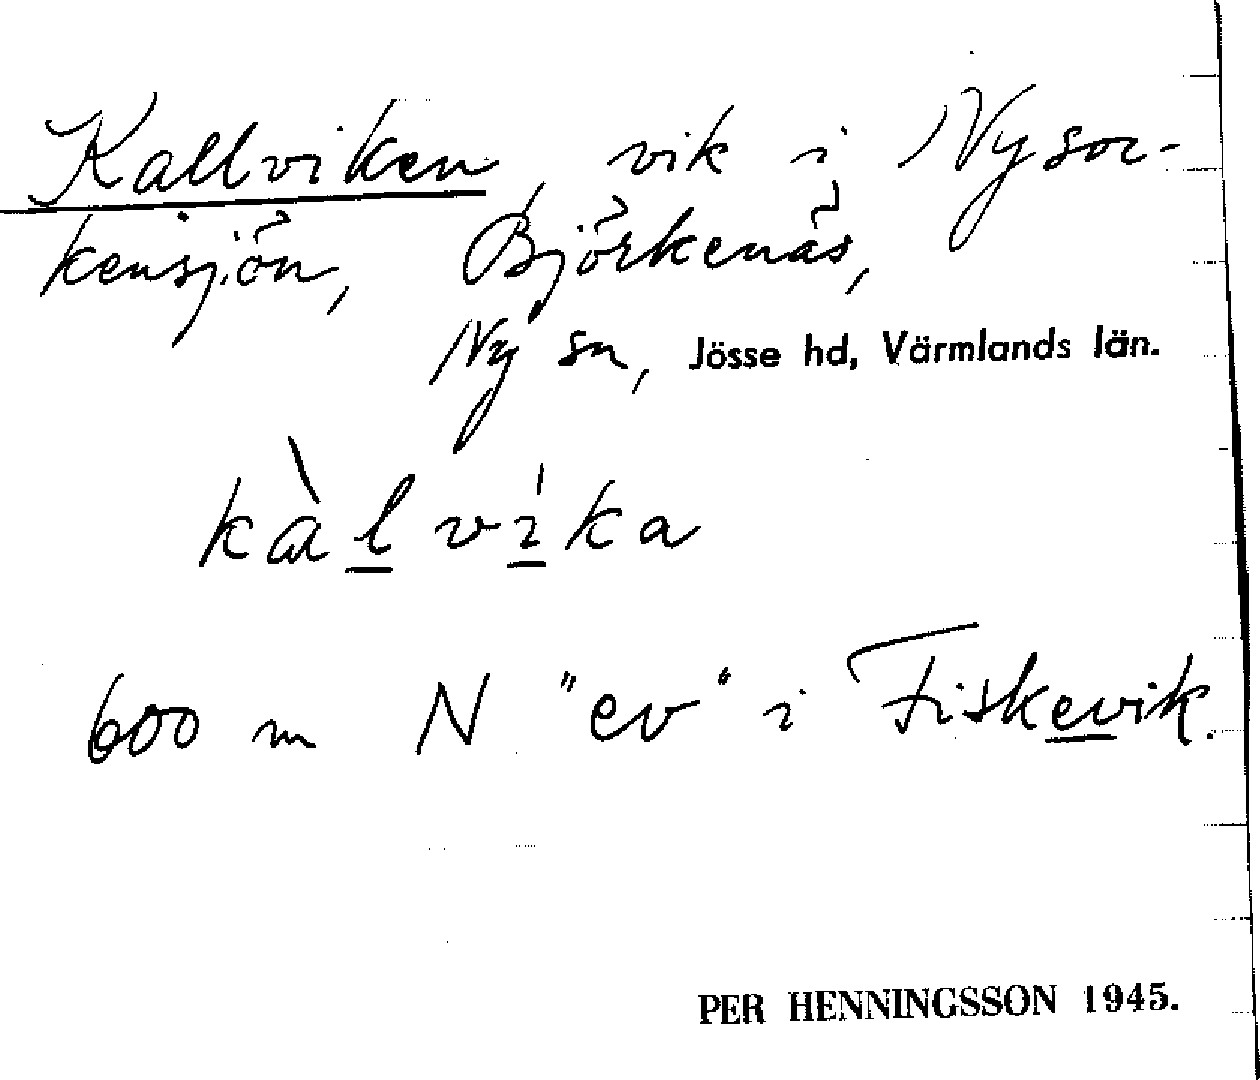 Kallviken, vik i Nysoc-
kensjön, Björkenäs,
Ny sn, Jösse hd, Värmlands län.
kàlvìka
600 m N "ev" i Fiskevik.
PER HENNINGSSON 1945.